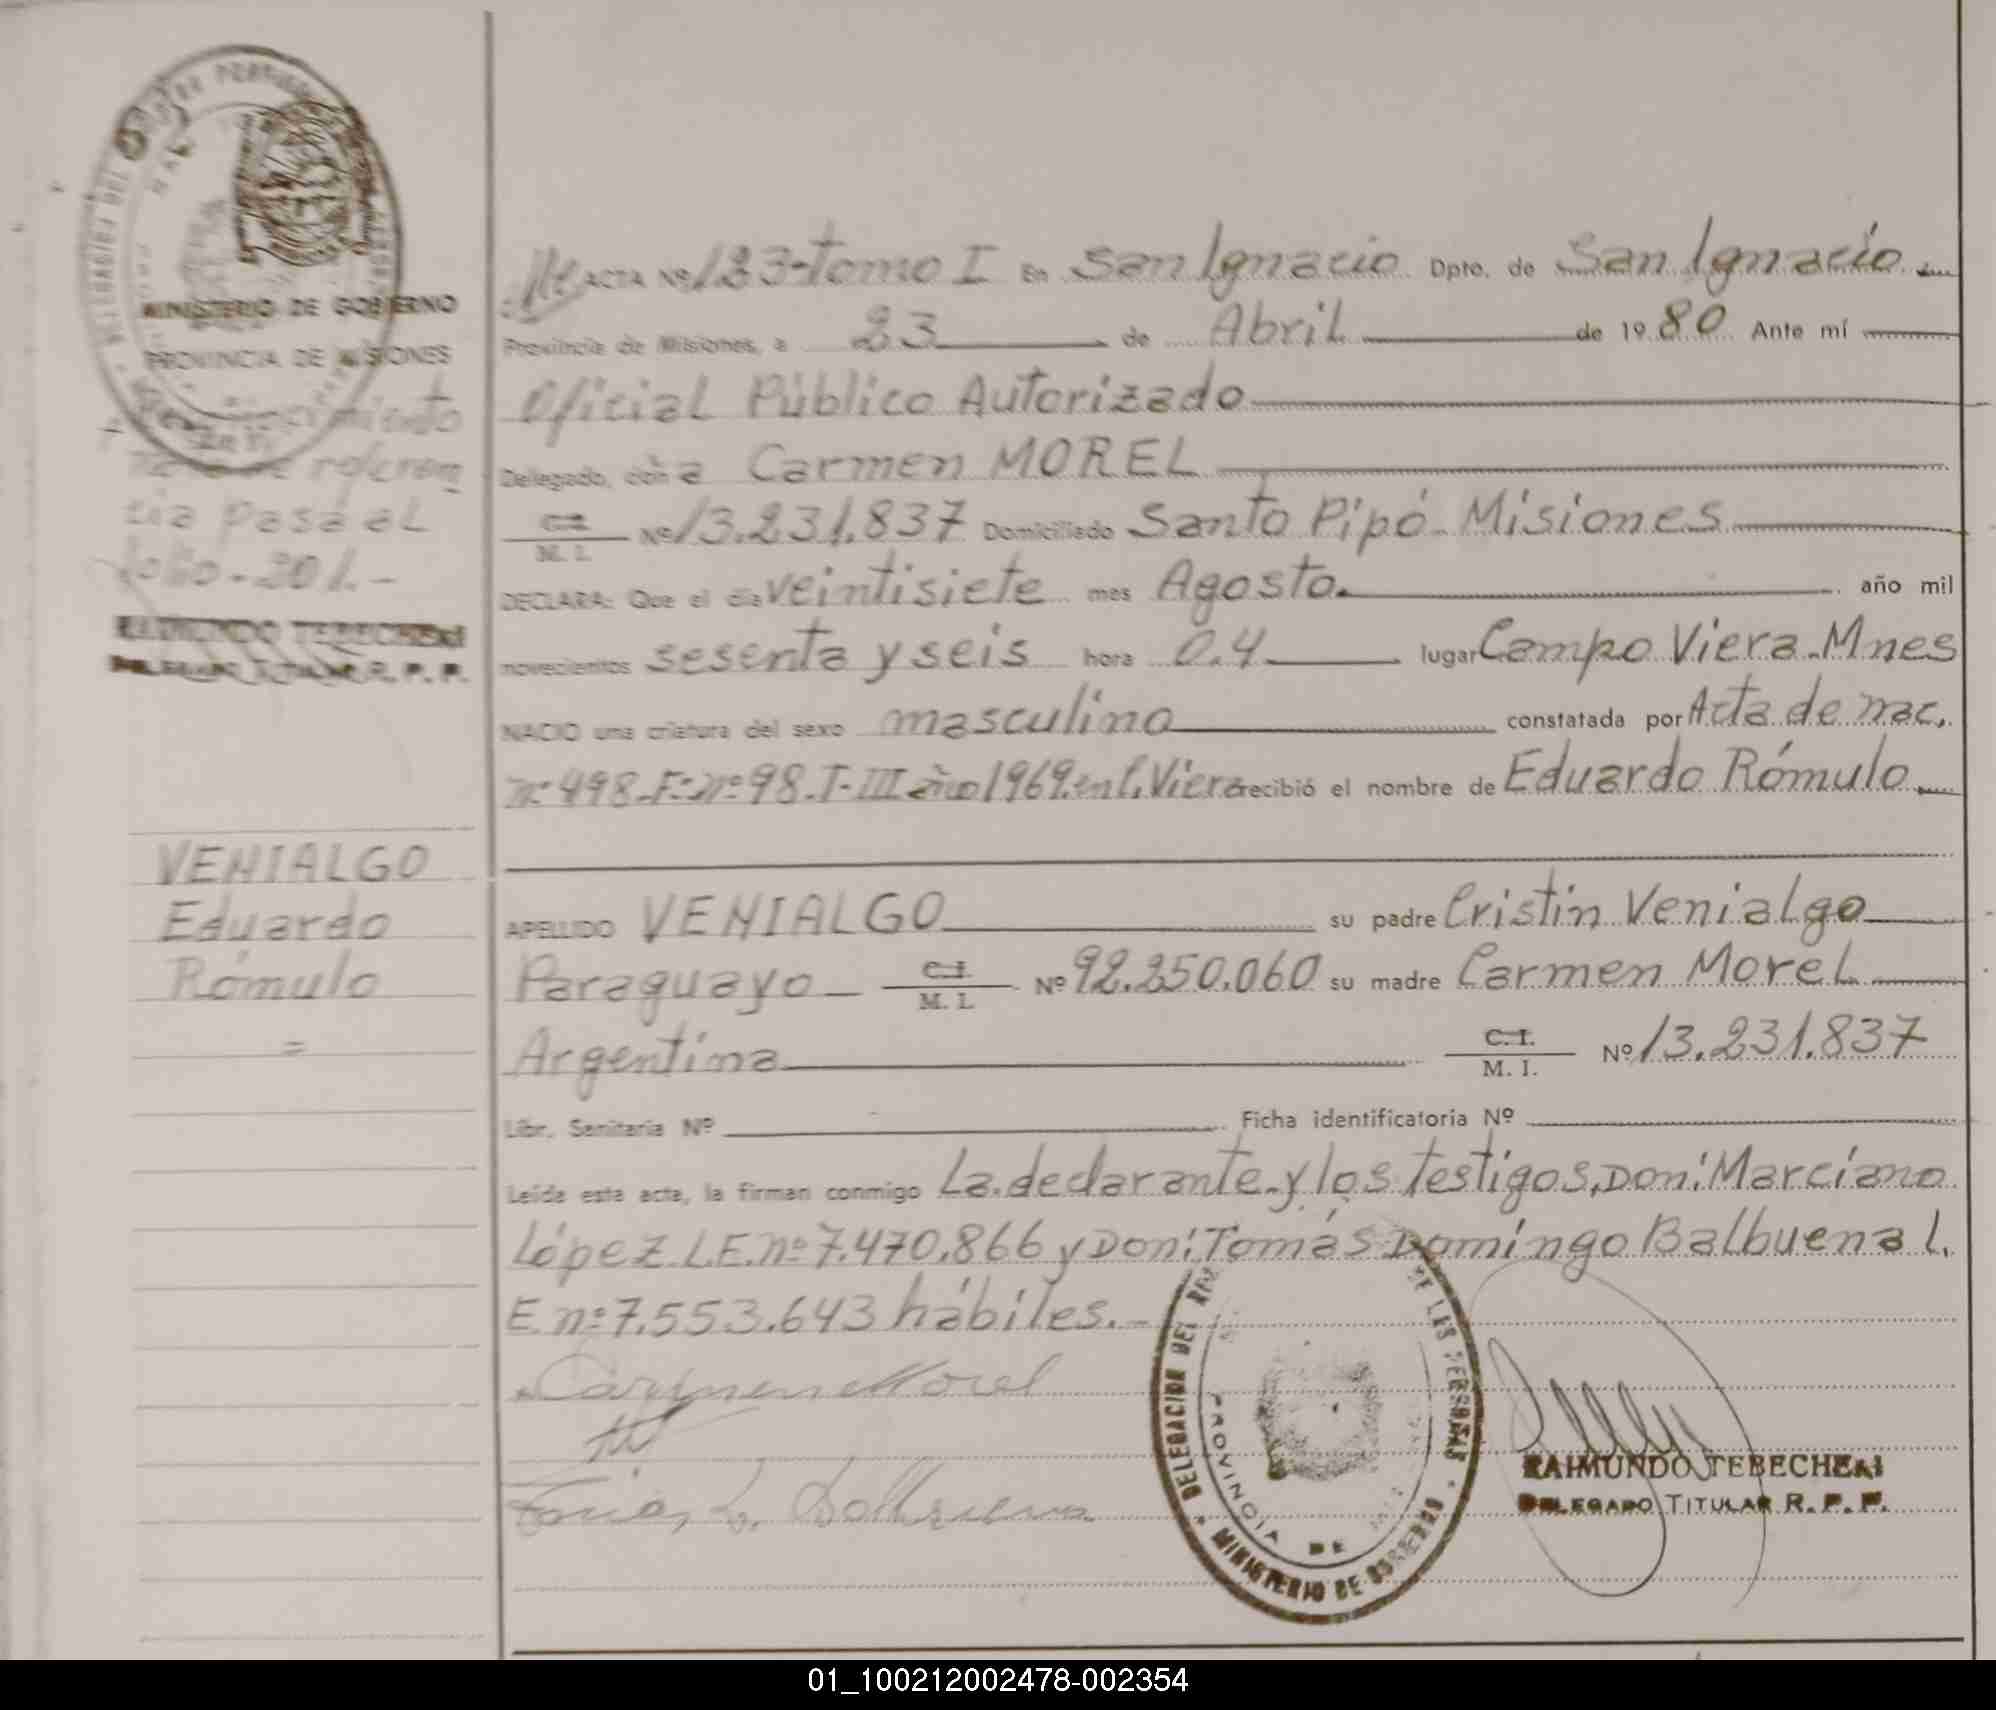 MINISTERIO DE GOBIERNO
PROVINCIA DE MISIONES
cia pasa al
folio-201.-
RAIMUNDO TEBECHERI
DELEGADO TITULAR R. P. P.
VENIALGO
Eduardo
Rómulo
=
ACTA Nº 123-tomo I En San Ignacio Dpto. de San Ignacio
Provincia de Misiones, a 23 de Abril de 1980 Ante mí
Oficial Público Autorizado
Delegado, doña Carmen MOREL
C.I. M. I. Nº 13.231.837 Domiciliado Santo Pipó-Misiones
DECLARA: Que el día veintisiete mes Agosto. año mil
novecientos sesenta y seis hora 0.4 lugar Campo Viera-Mnes
NACIO una criatura del sexo masculino constatada por Acta de nac.
nº 498-Fº nº 98-T-III año 1969 en C. Viera recibió el nombre de Eduardo Rómulo
APELLIDO VENIALGO su padre Cristin Venialgo
Paraguayo C.I. M. I. Nº 92.250.060 su madre Carmen Morel
Argentina C.I. M. I. Nº 13.231.837
Libr. Sanitaria Nº Ficha identificatoria Nº
Leída esta acta, la firman conmigo La declarante y los testigos, Don: Marciano
López L.E. nº 7.470.866 y Don: Tomás Domingo Balbuena L.
E. nº 7.553.643 hábiles.-
Carmen Morel
DELEGACION DEL DE LAS PERSONAS
PROVINCIA DE
MINISTERIO DE GOBIERNO
RAIMUNDO TEBECHERI
DELEGADO TITULAR R. P. P.
01_100212002478-002354